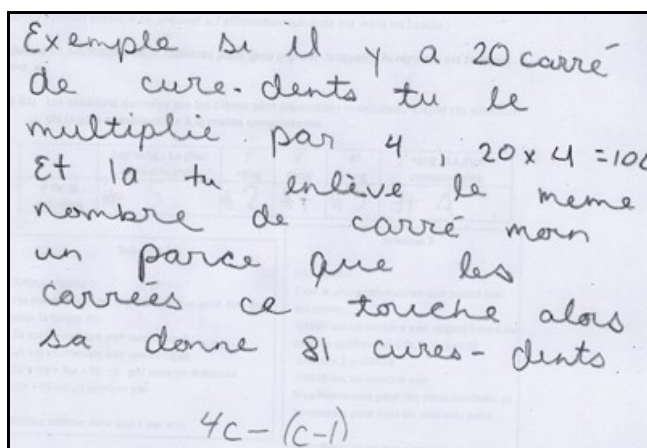 Exemple si il y a 20 carré
de cure-dents tu le
multiplie par 4, 20 x 4 = 100
Et la tu enlève le meme
nombre de carré moin
un parce que les
carrées ce touche alors
sa donne 81 cures-dents
4c - (c-1)